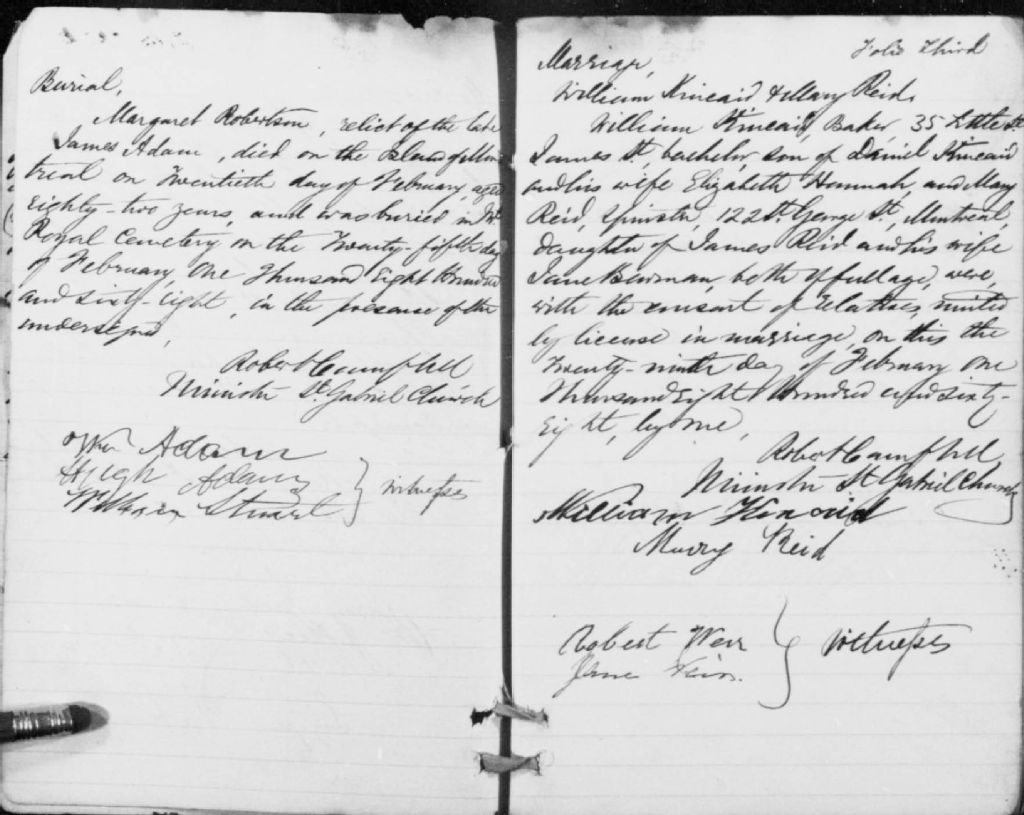 Burial,
Margaret Robertson, relict of the late
James Adam, died on the Island of Mon
treal on Twentieth day of February, aged
Eighty-two years, and was buried in Mt.
Royal Cemetery on the Twenty-fifth day
of February, One Thousand Eight Hundred
and sixty-eight, in the presence of the
undersigned,
Robert Campbell
Minister St. Gabriel Church
Wm Adam
Hugh Adam
William Stuart
witnesses
Folio Third
Marriage,
William Kincaid & Mary Reid,
William Kincaid, Baker, 35 Little St
James St., bachelor, son of Daniel Kincaid
and his wife Elizabeth Hannah, and Mary
Reid, spinster, 122 St. George St., Montreal,
daughter of James Reid and his wife
Jane, both of full age, were,
with the consent of relatives, united
by license in marriage, on this the
Twenty-ninth day of February One
Thousand Eight Hundred and sixty-
Eight, by me,
Robert Campbell
Minister St Gabriel Church
William Kincaid
Mary Reid
Robert Weir
Jane Weir.
Witnesses